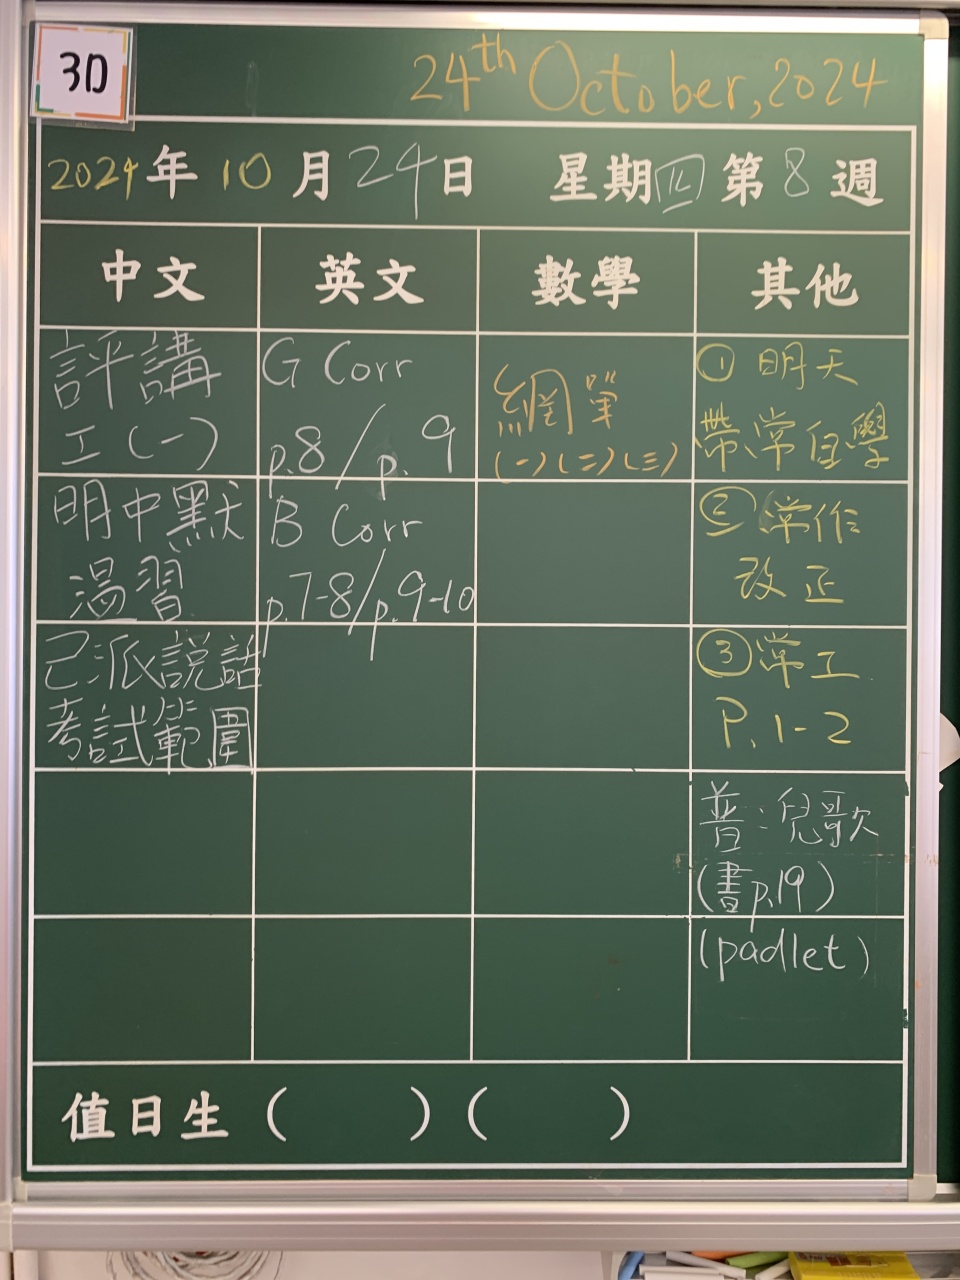 3D
24th October, 2024
2024年10月24日 星期四第8週
中文 英文 數學 其他
評講
工(一)
G Corr
p.8/p.9
網單
(一)(二)(三)
① 明天
帶常自學
明中默
溫習
B Corr
p.7-8/p.9-10
② 常作
改正
已派説話
考試範圍
③ 常工
P.1-2
普:兒歌
(書p.19)
(padlet)
值日生 ( ) ( )